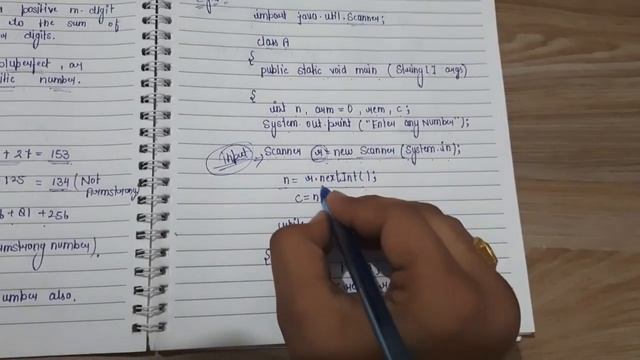 positive n-digit
do the sum of
digits.
, or
number.
+ 27 = 153
125 = 134 (Not
Armstrong)
+ 81 + 256
Armstrong number).
number also.
import java.util.Scanner;
class A
{
public static void main (String [] args)
{
int n, arm = 0, rem, c;
System.out.print ("Enter any Number");
Input → Scanner r = new Scanner (System.in);
n = r.nextInt();
c = n
while
{